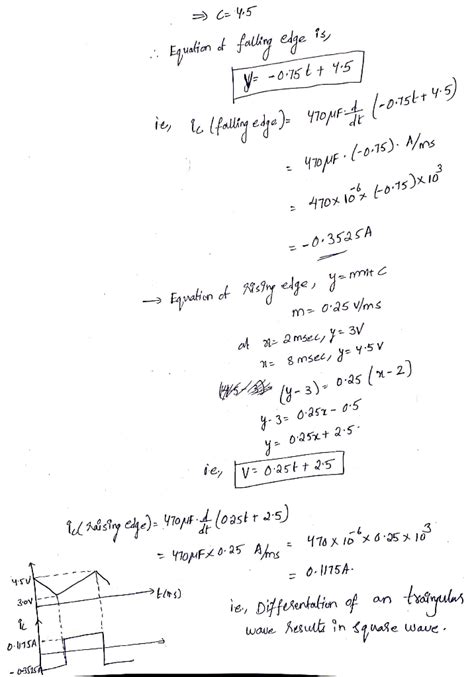 ⇒ C= 4.5
∴ Equation of falling edge is,
V= -0.75t + 4.5
ie, ic (falling edge)= 470µF d/dt (-0.75t + 4.5)
= 470µF · (-0.75) · A/ms
= 470×10^-6 × (-0.75)×10^3
= -0.3525A
→ Equation of rising edge, y=mx+c
m= 0.25 V/ms
at x= 2msec, y= 3V
x= 8msec, y= 4.5V
(y-3) = 0.25 (x-2)
y-3= 0.25x - 0.5
y= 0.25x + 2.5
ie, V= 0.25t + 2.5
ic (raising edge)= 470µF· d/dt (0.25t + 2.5)
= 470µF × 0.25 A/ms = 470×10^-6 × 0.25×10^3
= 0.1175A.
4.5V
3.0V
t(ms)
ic
0.1175A
-0.3525A
ie, Differentation of an traingular
wave results in square wave.